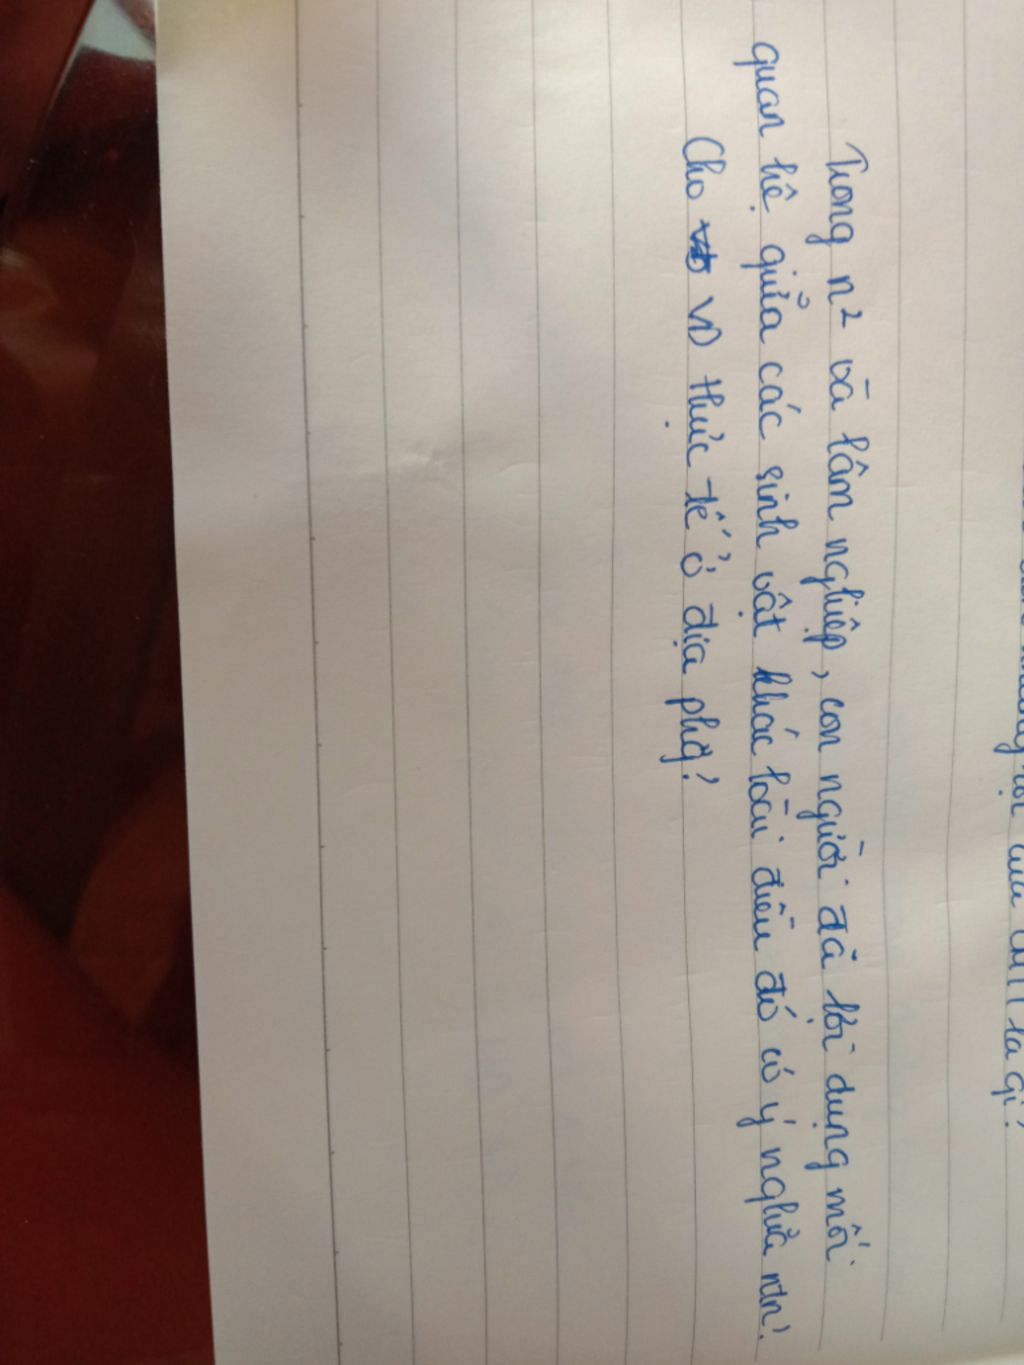 là gì?
Trong n² và lâm nghiệp, con người đã lợi dụng mối
quan hệ giữa các sinh vật khác loài điều đó có ý nghĩa ntn?
Cho VD thực tế ở địa phg?